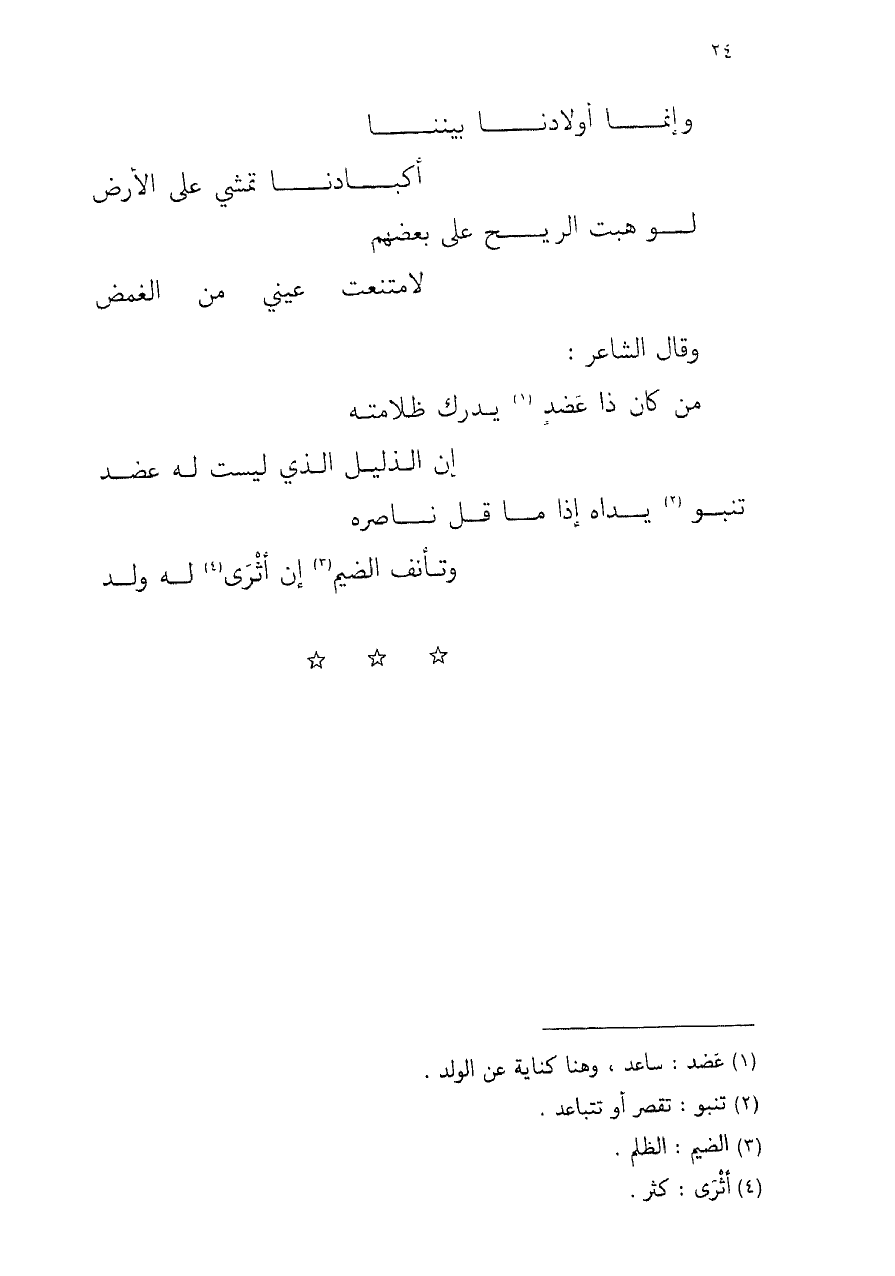 ٢٤
وإنمـــا أولادنـــا بيننـــا
أكبـــادنـــا تمشي على الأرض
لـــو هبت الريـــح على بعضهم
لامتنعت عيني من الغمض
وقال الشاعر :
من كان ذا عَضدٍ (١) يـدرك ظلامتـه
إن الـذليـل الـذي ليست لـه عضـد
تنبـو (٢) يـداه إذا مـا قـل نـاصره
وتـأنف الضيم(٣) إن أثْرَى(٤) لـه ولـد
☆ ☆ ☆
(١) عَضد : ساعد ، وهنا كناية عن الولد .
(٢) تنبو : تقصر أو تتباعد .
(٣) الضيم : الظلم .
(٤) أثْرَى : كثر .